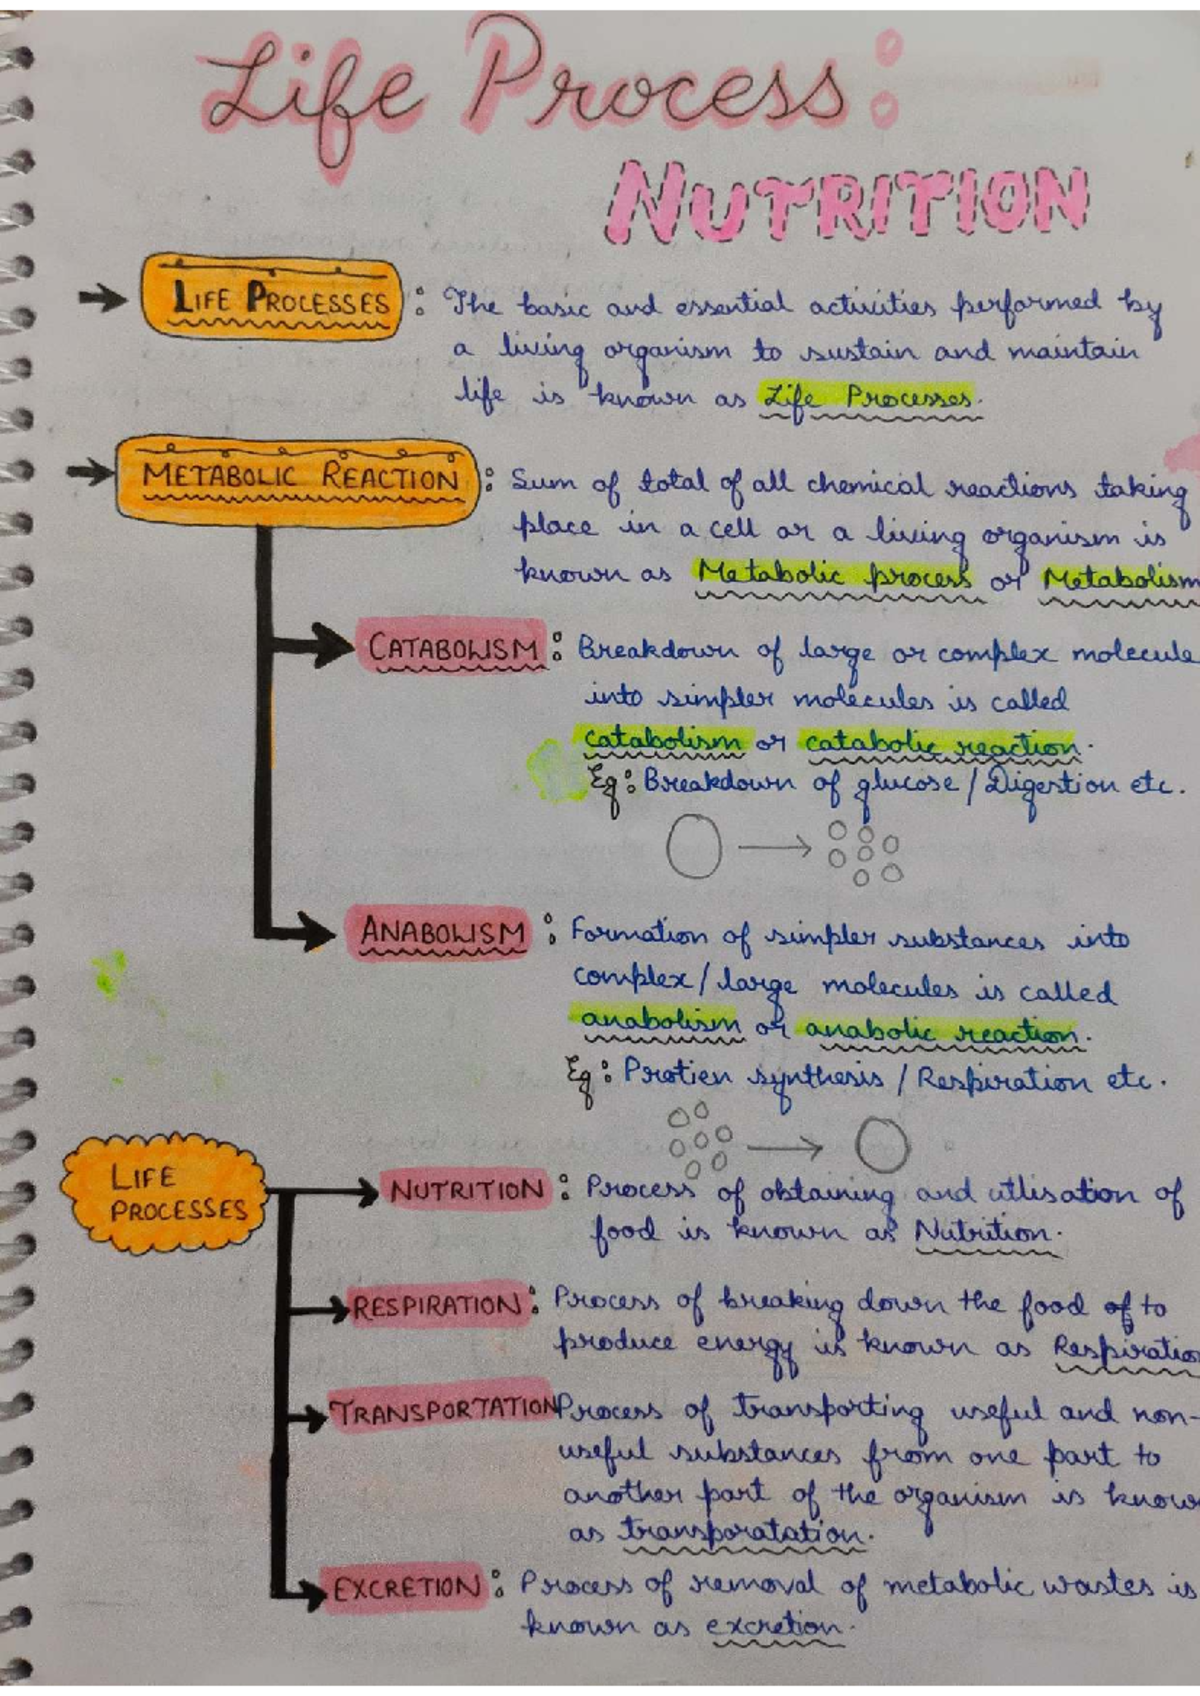 Life Process:
NUTRITION
LIFE PROCESSES : The basic and essential activities performed by
a living organism to sustain and maintain
life is known as Life Processes.
METABOLIC REACTION : Sum of total of all chemical reactions taking
place in a cell or a living organism is
known as Metabolic process or Metabolism
CATABOLISM : Breakdown of large or complex molecule
into simpler molecules is called
catabolism or catabolic reaction.
Eg: Breakdown of glucose / Digestion etc.
ANABOLISM : Formation of simpler substances into
complex / large molecules is called
anabolism or anabolic reaction.
Eg: Protien synthesis / Respiration etc.
LIFE
PROCESSES
NUTRITION : Process of obtaining and utlisation of
food is known as Nutrition.
RESPIRATION : Process of breaking down the food of to
produce energy is known as Respiratio
TRANSPORTATION Process of transporting useful and non-
useful substances from one part to
another part of the organism is know
as transporatation.
EXCRETION : Process of removal of metabolic wastes is
known as excretion.